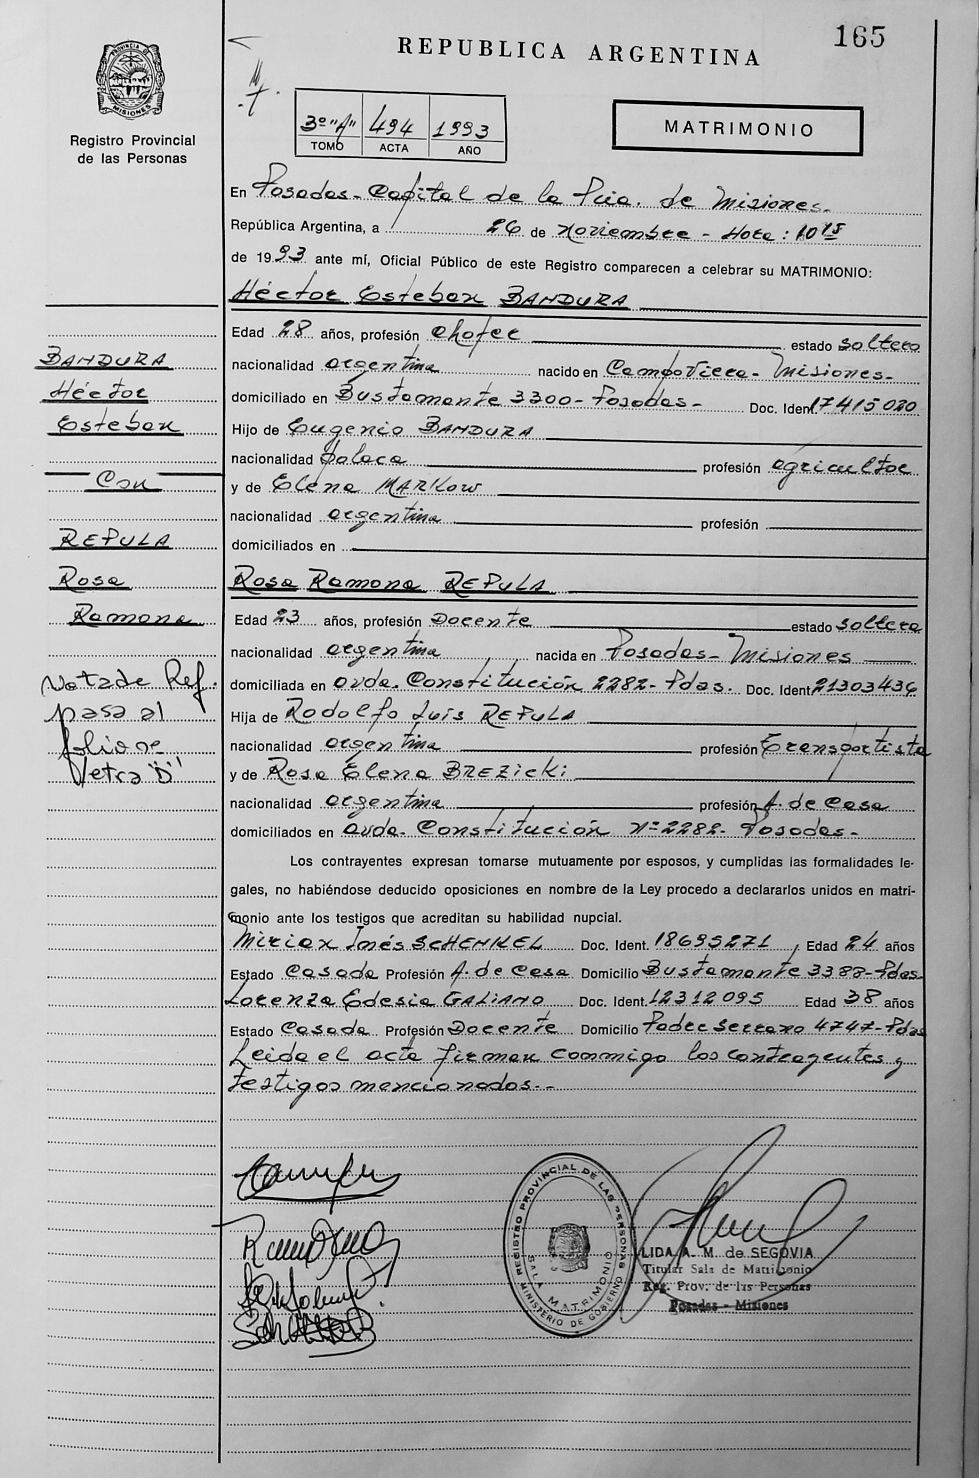 165
REPUBLICA ARGENTINA
PROVINCIA DE
MISIONES
Registro Provincial
de las Personas
3º "A" 494 1993
TOMO ACTA AÑO
MATRIMONIO
En Posadas - Capital de la Pcia. de Misiones.
República Argentina, a 26 de Noviembre - Hora: 10 15
de 1993 ante mí, Oficial Público de este Registro comparecen a celebrar su MATRIMONIO:
Héctor Esteban BANDURA
Edad 28 años, profesión chofer estado soltero
nacionalidad argentina nacido en Campo Viera - Misiones -
domiciliado en Bustamante 3300 - Posadas - Doc. Ident. 17415020
Hijo de Eugenio BANDURA
nacionalidad polaca profesión agricultor
y de Elena MARILOW
nacionalidad argentina profesión
domiciliados en
Rosa Ramona REPULA
Edad 23 años, profesión Docente estado soltera
nacionalidad argentina nacida en Posadas - Misiones
domiciliada en avda. Constitución 2282 - Pdas. Doc. Ident. 21303436
Hija de Rodolfo Luis REPULA
nacionalidad argentina profesión transportista
y de Rosa Elena BREZicKi
nacionalidad argentina profesión A. de casa
domiciliados en avda. Constitución Nº 2282 - Posadas -
Los contrayentes expresan tomarse mutuamente por esposos, y cumplidas las formalidades le-
gales, no habiéndose deducido oposiciones en nombre de la Ley procedo a declararlos unidos en matri-
monio ante los testigos que acreditan su habilidad nupcial.
Miriam Inés SCHENKEL Doc. Ident. 18695271, Edad 24 años
Estado Casada Profesión A. de casa Domicilio Bustamante 3388 - Pdas
Lorenza Edesia GALIANO Doc. Ident. 12312095 Edad 38 años
Estado Casada Profesión Docente Domicilio Padre Serrano 4747 - Pdas
Leida el acta firman conmigo los contrayentes y
testigos mencionados. -
BANDURA
Héctor
Esteban
Con
REPULA
Rosa
Ramona
Nota de Ref.
pasa al
folio
Letra "D"
REGISTRO PROVINCIAL DE LAS PERSONAS
SALA MATRIMONIO
MINISTERIO DE GOBIERNO
LIDA A. M. de SEGOVIA
Titular Sala de Matrimonio
Reg. Prov. de las Personas
Posadas - Misiones